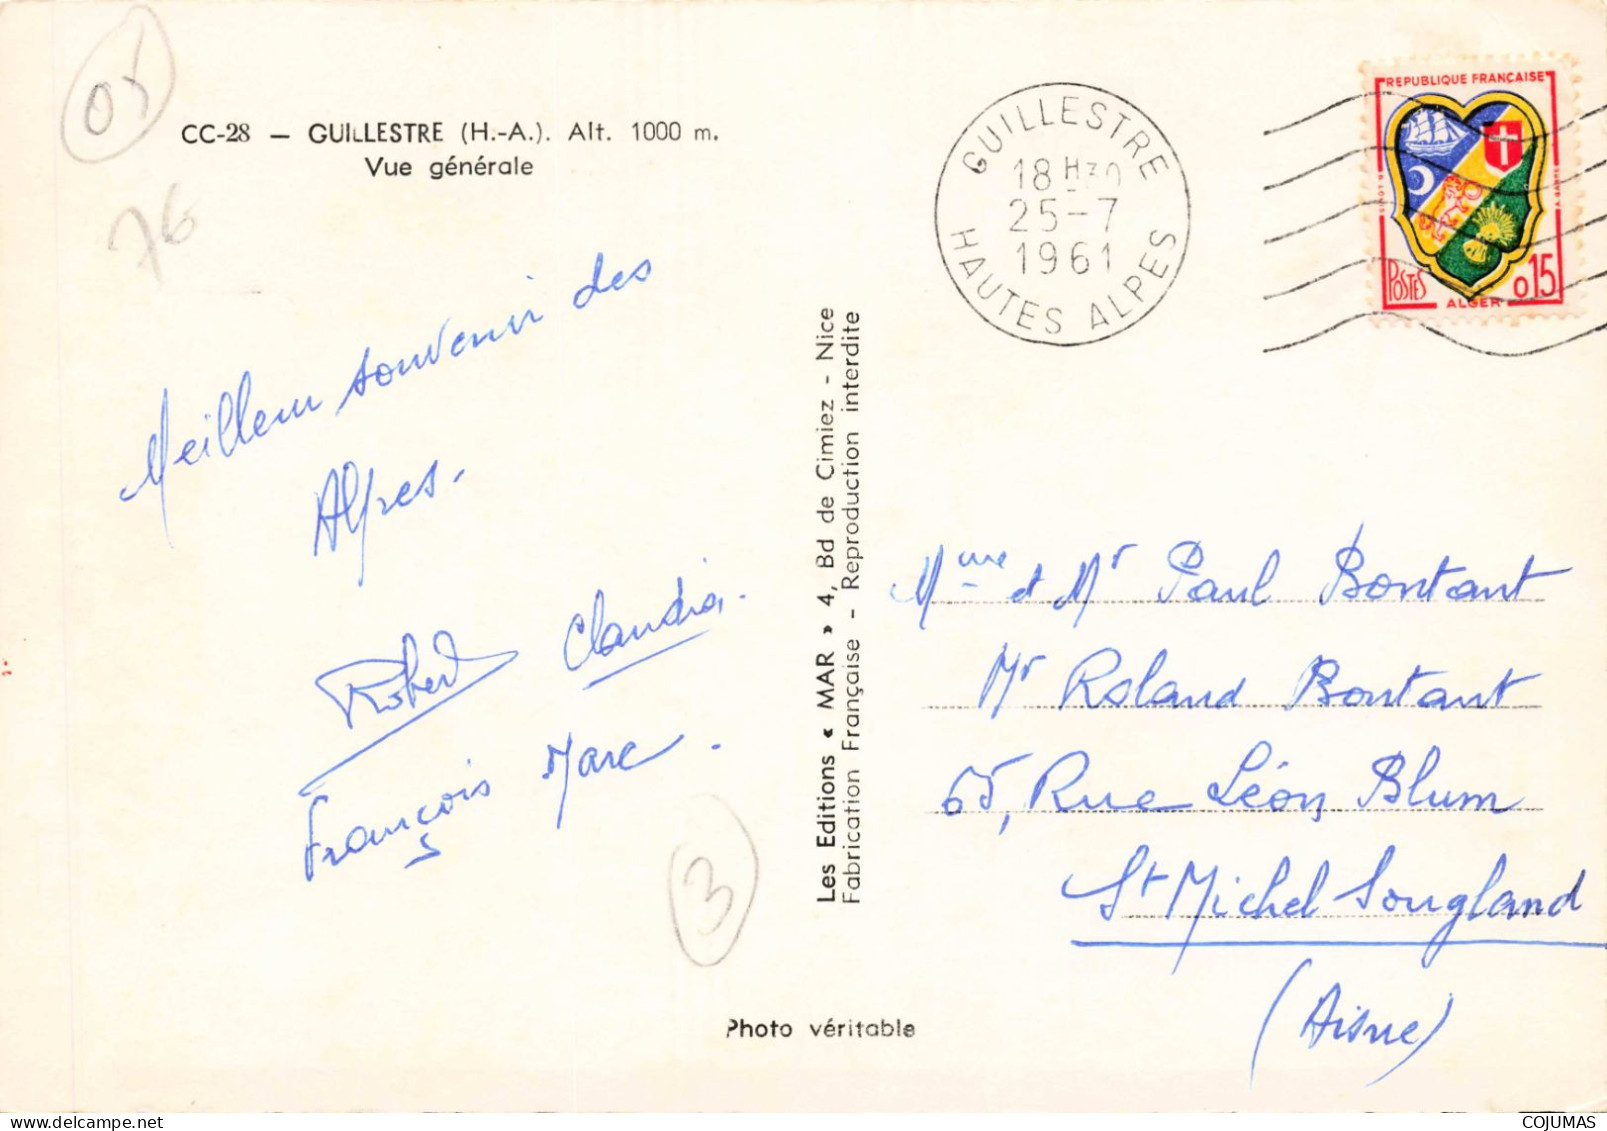 05
76
CC-28 — GUILLESTRE (H.-A.). Alt. 1000 m.
Vue générale
Meilleur souvenir des
Alpes.
Robert Claudia.
François Marc.
3
Photo véritable
Les Editions « MAR » 4, Bd de Cimiez - Nice
Fabrication Française - Reproduction interdite
GUILLESTRE
18 H 30
25-7
1961
HAUTES ALPES
REPUBLIQUE FRANÇAISE
POSTES
ALGER
0,15
Mme et Mr Paul Bontant
Mr Roland Bontant
65, Rue Léon Blum
St Michel Sougland
(Aisne)
COJUMAS